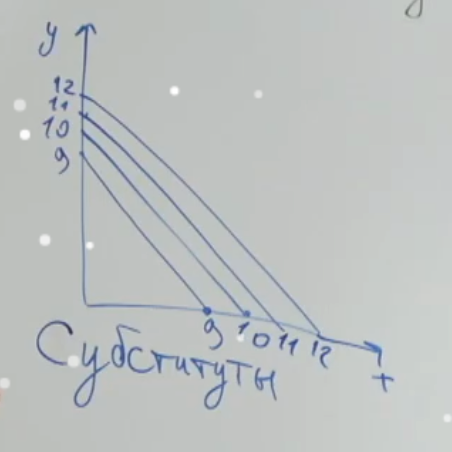 y
12
11
10
9
9 10 11 12
x
Субституты